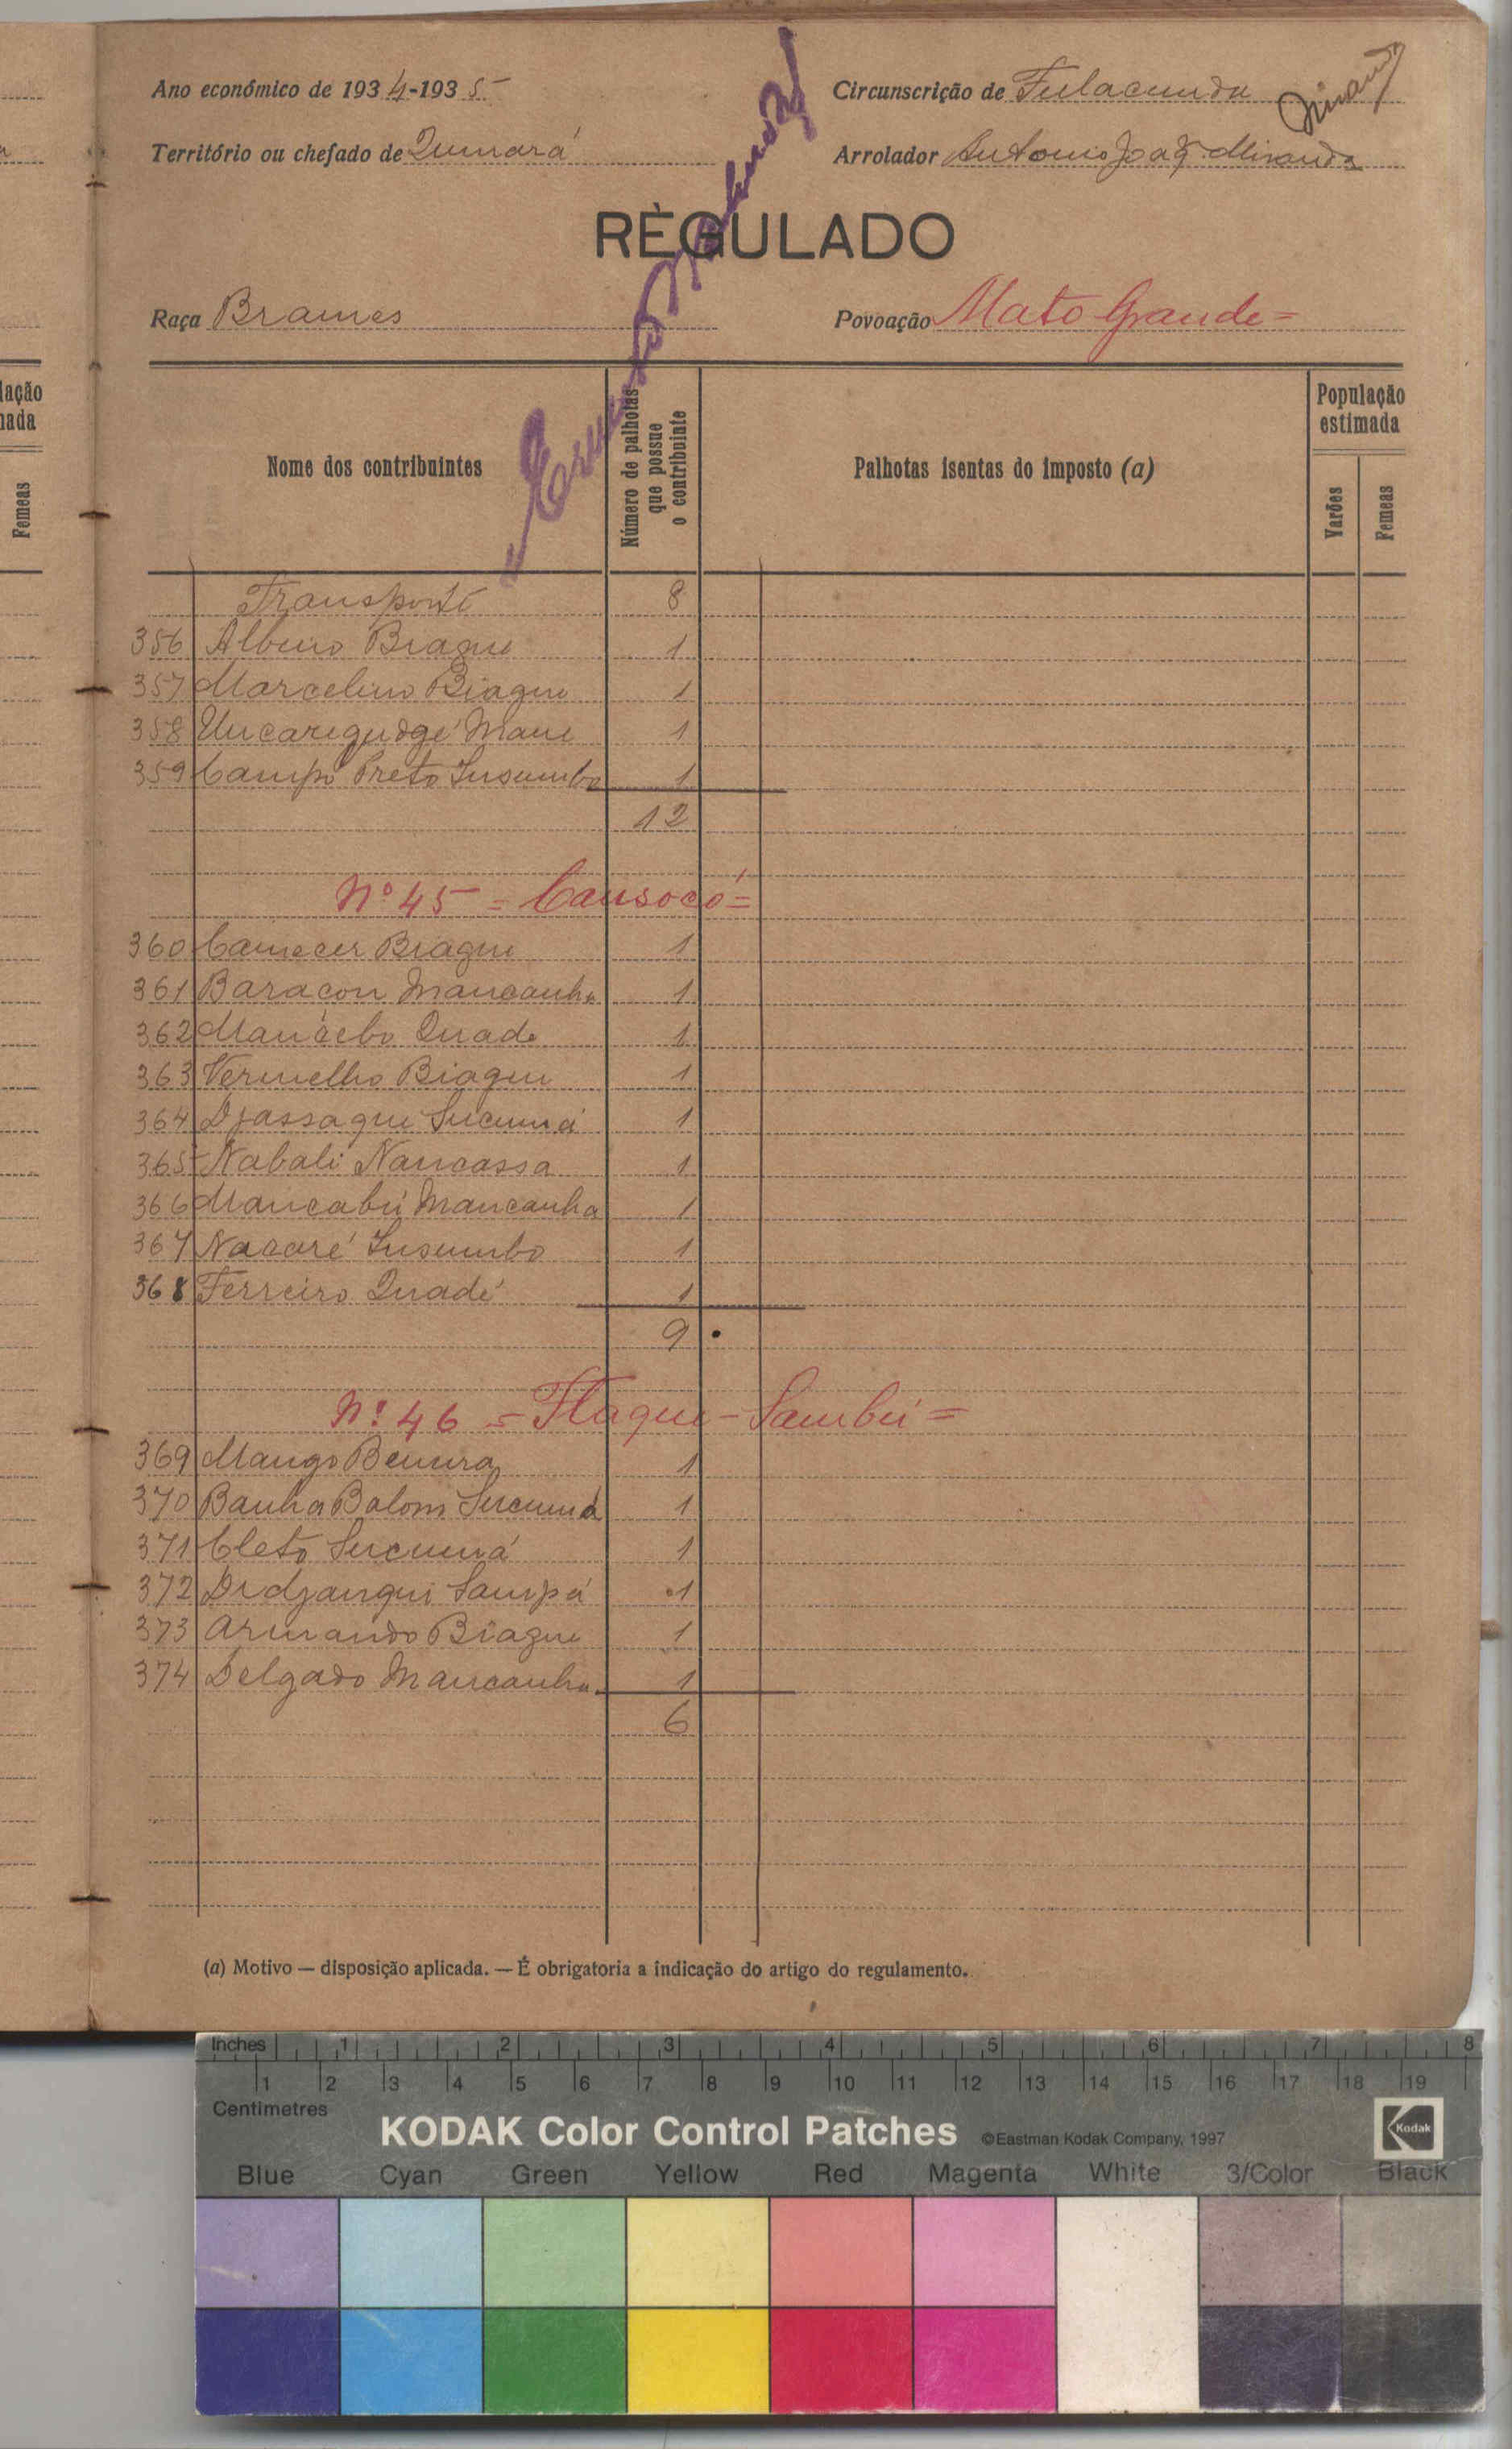 Ano económico de 1934-1935
Circunscrição de Fulacunda
Território ou chefado de Quinará
Arrolador Antonio Joaq. Miranda
RÈGULADO
Raça Brames
Povoação Mato Grande =
lação
nada
Femeas
Nome dos contribuintes
Número de palhotas que possue o contribuiate
Palhotas isentas do imposto (a)
População estimada
Varões
Femeas
Transporte 8
356 Albino Biague 1
357 Marcelino Biague 1
358 Uncaregudgé Mané 1
359 Campo Preto Insumbo 1
12
Nº 45 = Causocó =
360 Camecer Biague 1
361 Baracon Mancanha 1
362 Mancebo Quade 1
363 Vermelho Biague 1
364 Djassaque Sucumá 1
365 Nabali Nancassa 1
366 Mancabú Mancanha 1
367 Nacaré Insumbo 1
368 Ferreiro Quadé 1
9
Nº 46 = Flaque-Sambú =
369 Mango Bemura 1
370 Banha Balom Sucumá 1
371 Cleto Sucumá 1
372 Didjangui Sampá 1
373 Armando Biague 1
374 Delgado Mancanha 1
6
(a) Motivo — disposição aplicada. — É obrigatoria a indicação do artigo do regulamento.
Inches 1 2 3 4 5 6 7 8
1 2 3 4 5 6 7 8 9 10 11 12 13 14 15 16 17 18 19
Centimetres
KODAK Color Control Patches ©Eastman Kodak Company, 1997 Kodak
Blue Cyan Green Yellow Red Magenta White 3/Color Black